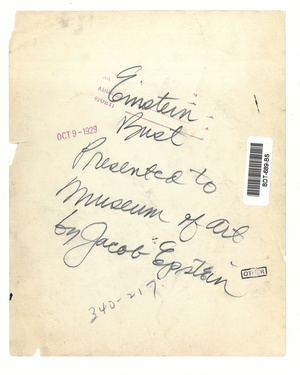 Einstein
Bust
OCT 9-1929
Presented to
Museum of Art
by Jacob Epstein
340-217.
OTHER
BOT-689-BS